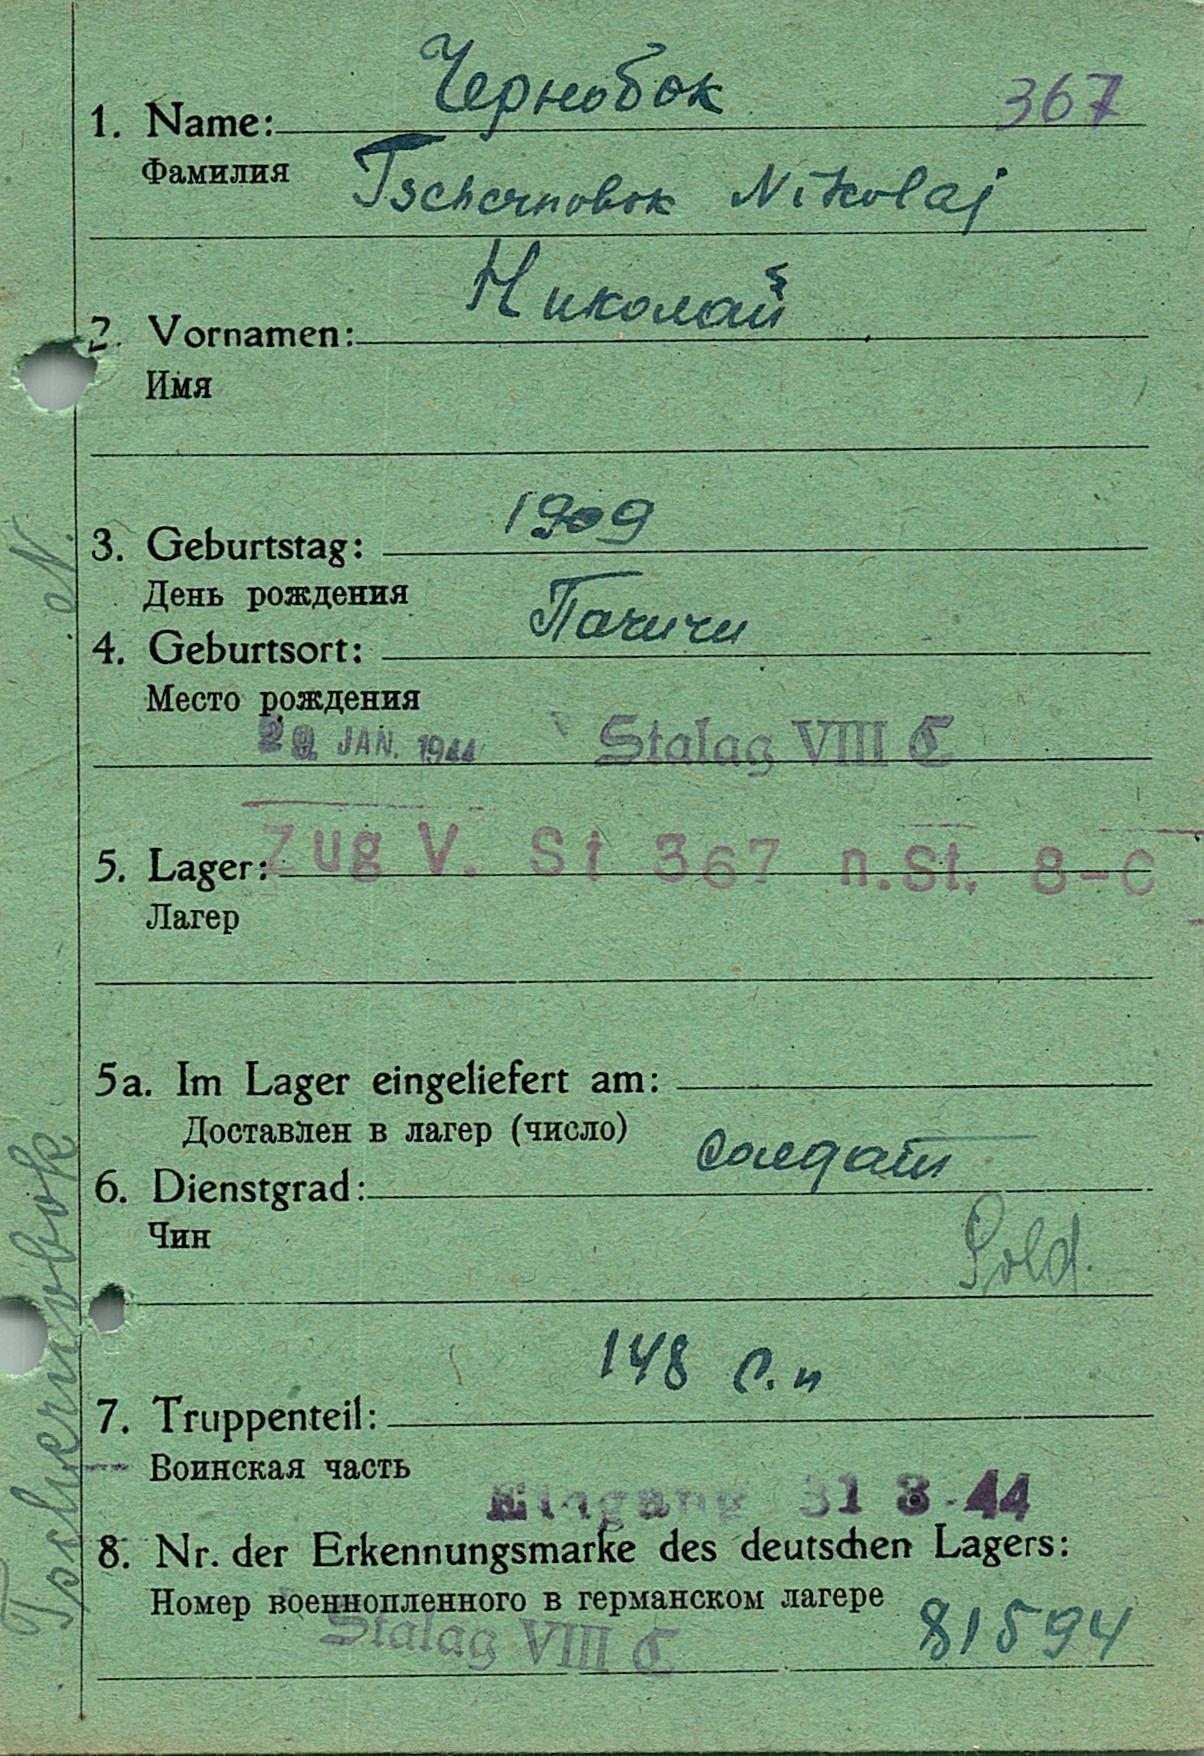 Чернобок
367
1. Name:
Фамилия
Tschernobok Nikolaj
Николай
2. Vornamen:
Имя
1909
3. Geburtstag:
День рождения
Пачичи
4. Geburtsort:
Место рождения
29. JAN. 1944 Stalag VIII C
Zug V. St 367 n.St. 8-C
5. Lager:
Лагер
5a. Im Lager eingeliefert am:
Доставлен в лагер (число)
солдат
6. Dienstgrad:
Чин
Sold.
148 с.п
7. Truppenteil:
Воинская часть
Eingang 31 3 44
8. Nr. der Erkennungsmarke des deutschen Lagers:
Номер военнопленного в германском лагере
81594
Stalag VIII C
Tschernobok N.